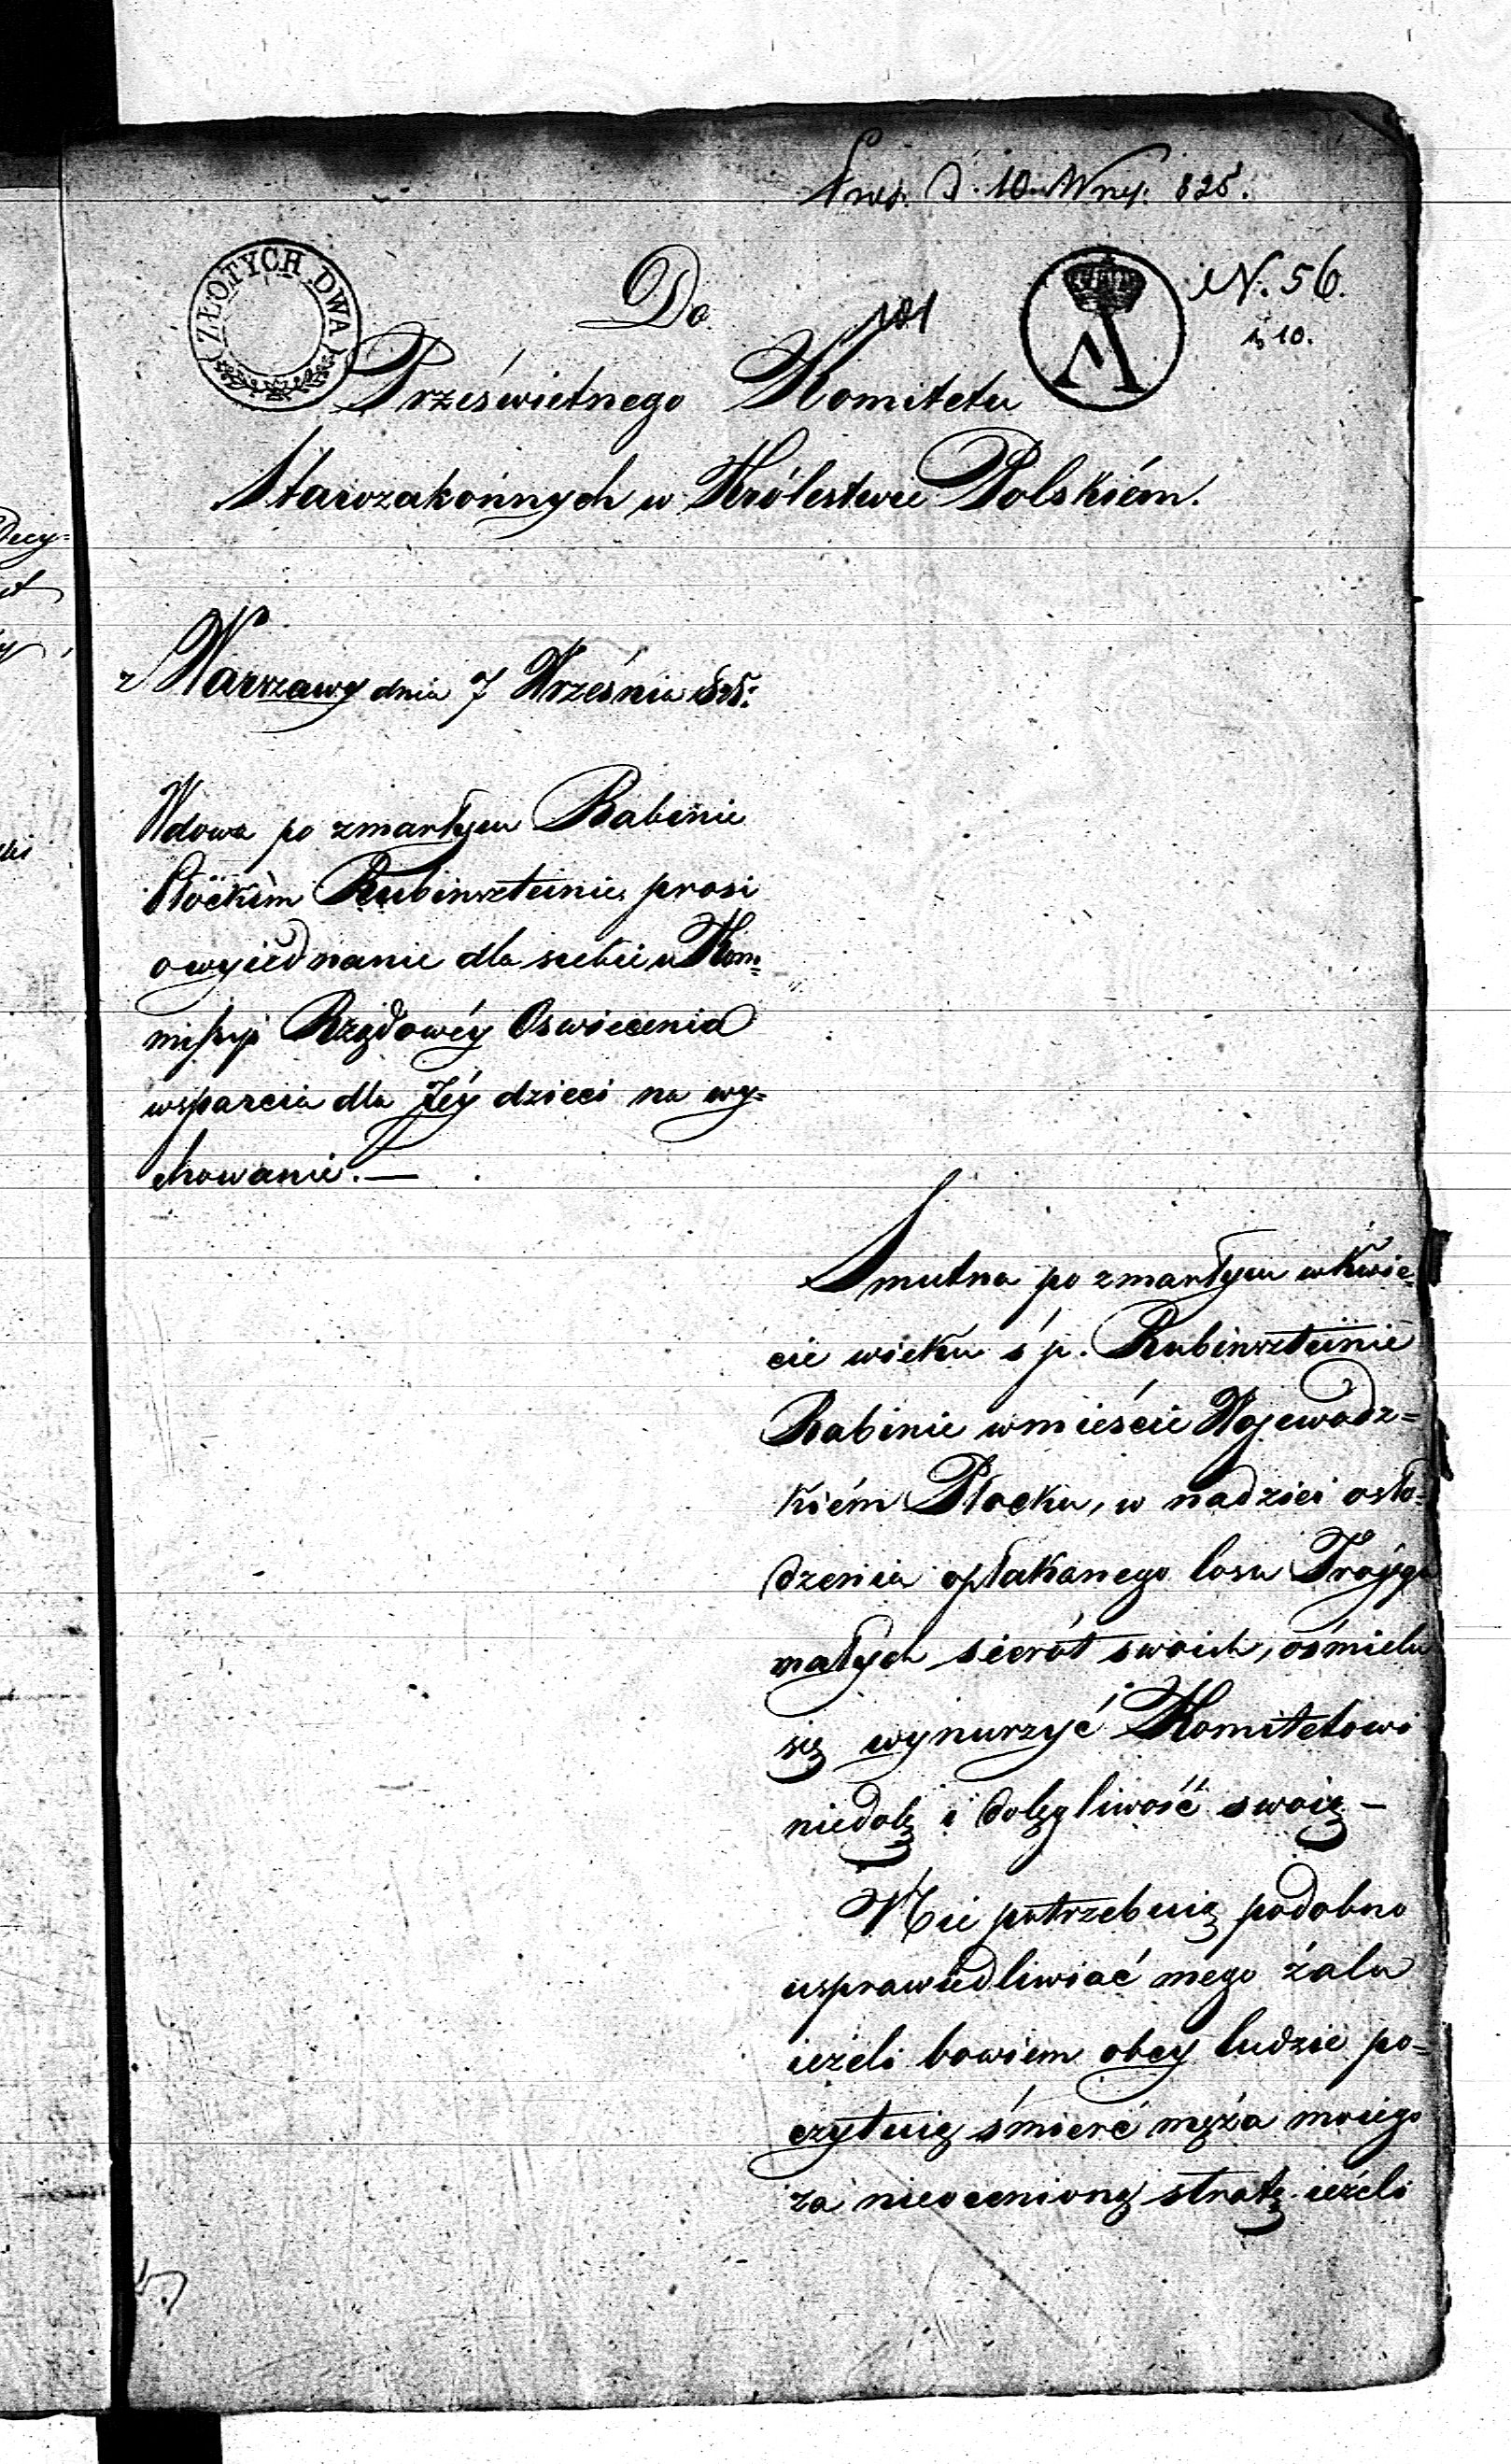 d. 10 Wrz. 825.
ZŁOTYCH DWA
Do
181
N. 56.
10.
Prześwietnego Komitetu
Starozakonnych w Królestwie Polskiém.
z Warszawy dnia 7 Września 825.
Wdowa po zmarłym Rabinie
Płockim Rubinszteinie prosi
o wyiednanie dla siebie u Kom=
missyi Rządowéy Oswiecenia
wsparcia dla Jéy dzieci na wy=
chowanie. —
Smutna po zmarłym w kwie=
cie wieku ś p. Rubinszteinie
Rabinie w mieście Wojewodz=
kiém Płocku, w nadziei osło=
dzenia opłakanego losu Trojga
małych sierót swoich, ośmiela
się wynurzyć Komitetowi
niedolę i dolegliwość swoię —
Nie potrzebuię podobno
usprawiedliwiać mégo żalu
ieżeli bowiem obcy ludzie po=
czytuią śmierć męża moiego
za nieocenioną stratę ieżeli